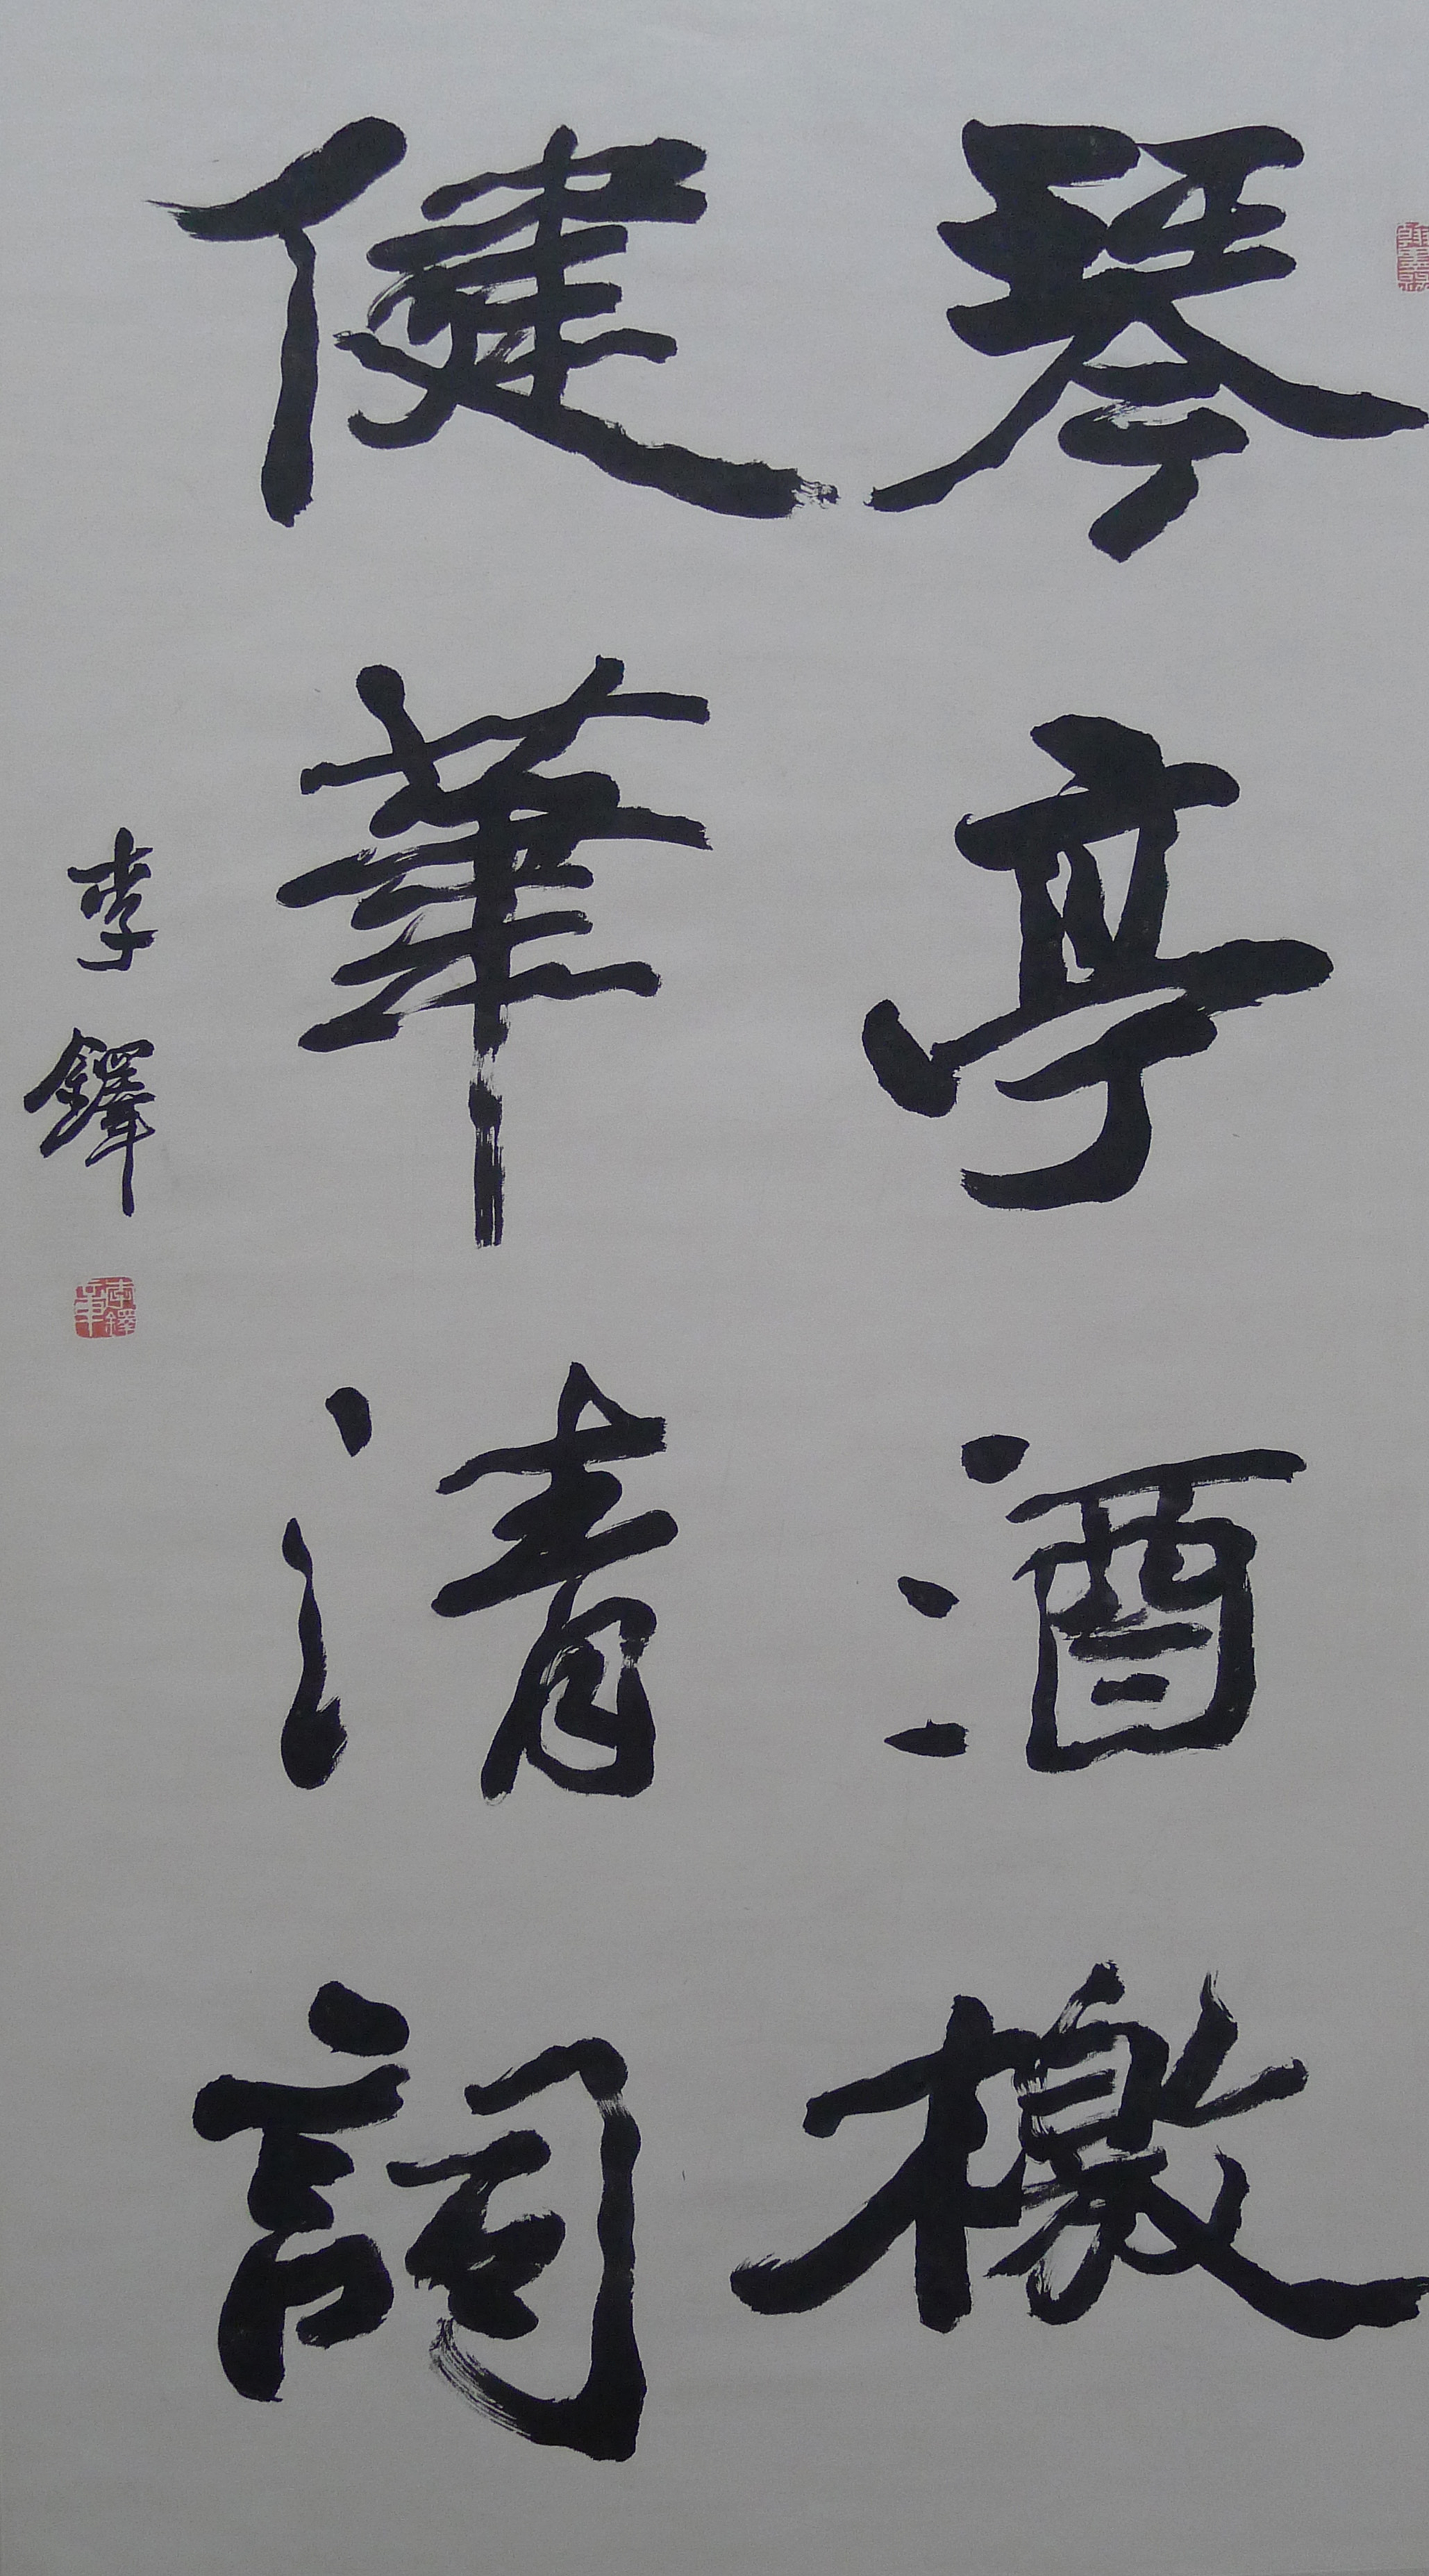 琴亭酒檄
健筆清詞
李鐸